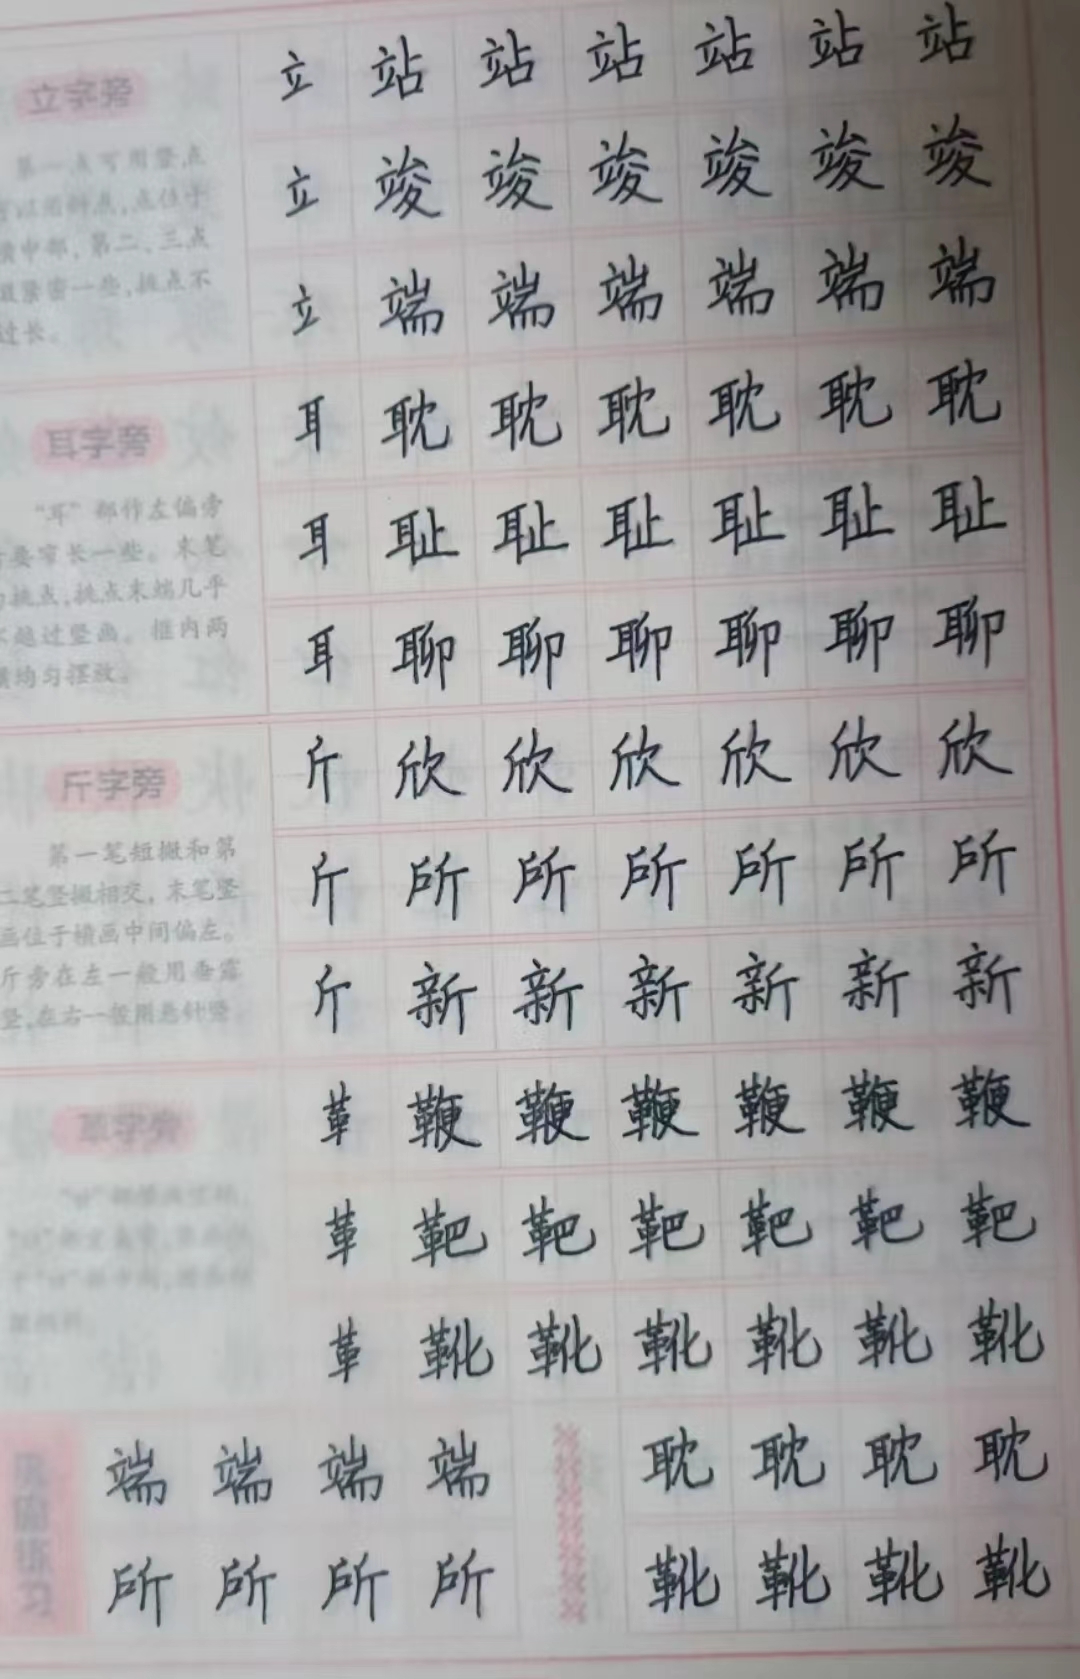 立字旁
第一点可用竖点
横中部,第二、三点
最紧密一些,挑点不
过长。
立 站 站 站 站 站 站
立 竣 竣 竣 竣 竣 竣
立 端 端 端 端 端 端
耳字旁
“耳”部作左偏旁
要窄长一些。末笔
挑点,挑点末端几乎
越过竖画。框内两
横均匀摆放。
耳 耽 耽 耽 耽 耽 耽
耳 耻 耻 耻 耻 耻 耻
耳 聊 聊 聊 聊 聊 聊
斤字旁
第一笔短撇和第
二笔竖撇相交,末笔竖
画位于横画中间偏左。
斤旁在左一般用垂露
竖,在右一般用悬针竖
斤 欣 欣 欣 欣 欣 欣
斤 所 所 所 所 所 所
斤 新 新 新 新 新 新
革字旁
革 鞭 鞭 鞭 鞭 鞭 鞭
革 靶 靶 靶 靶 靶 靶
革 靴 靴 靴 靴 靴 靴
练习
端 端 端 端
所 所 所 所
耽 耽 耽 耽
靴 靴 靴 靴